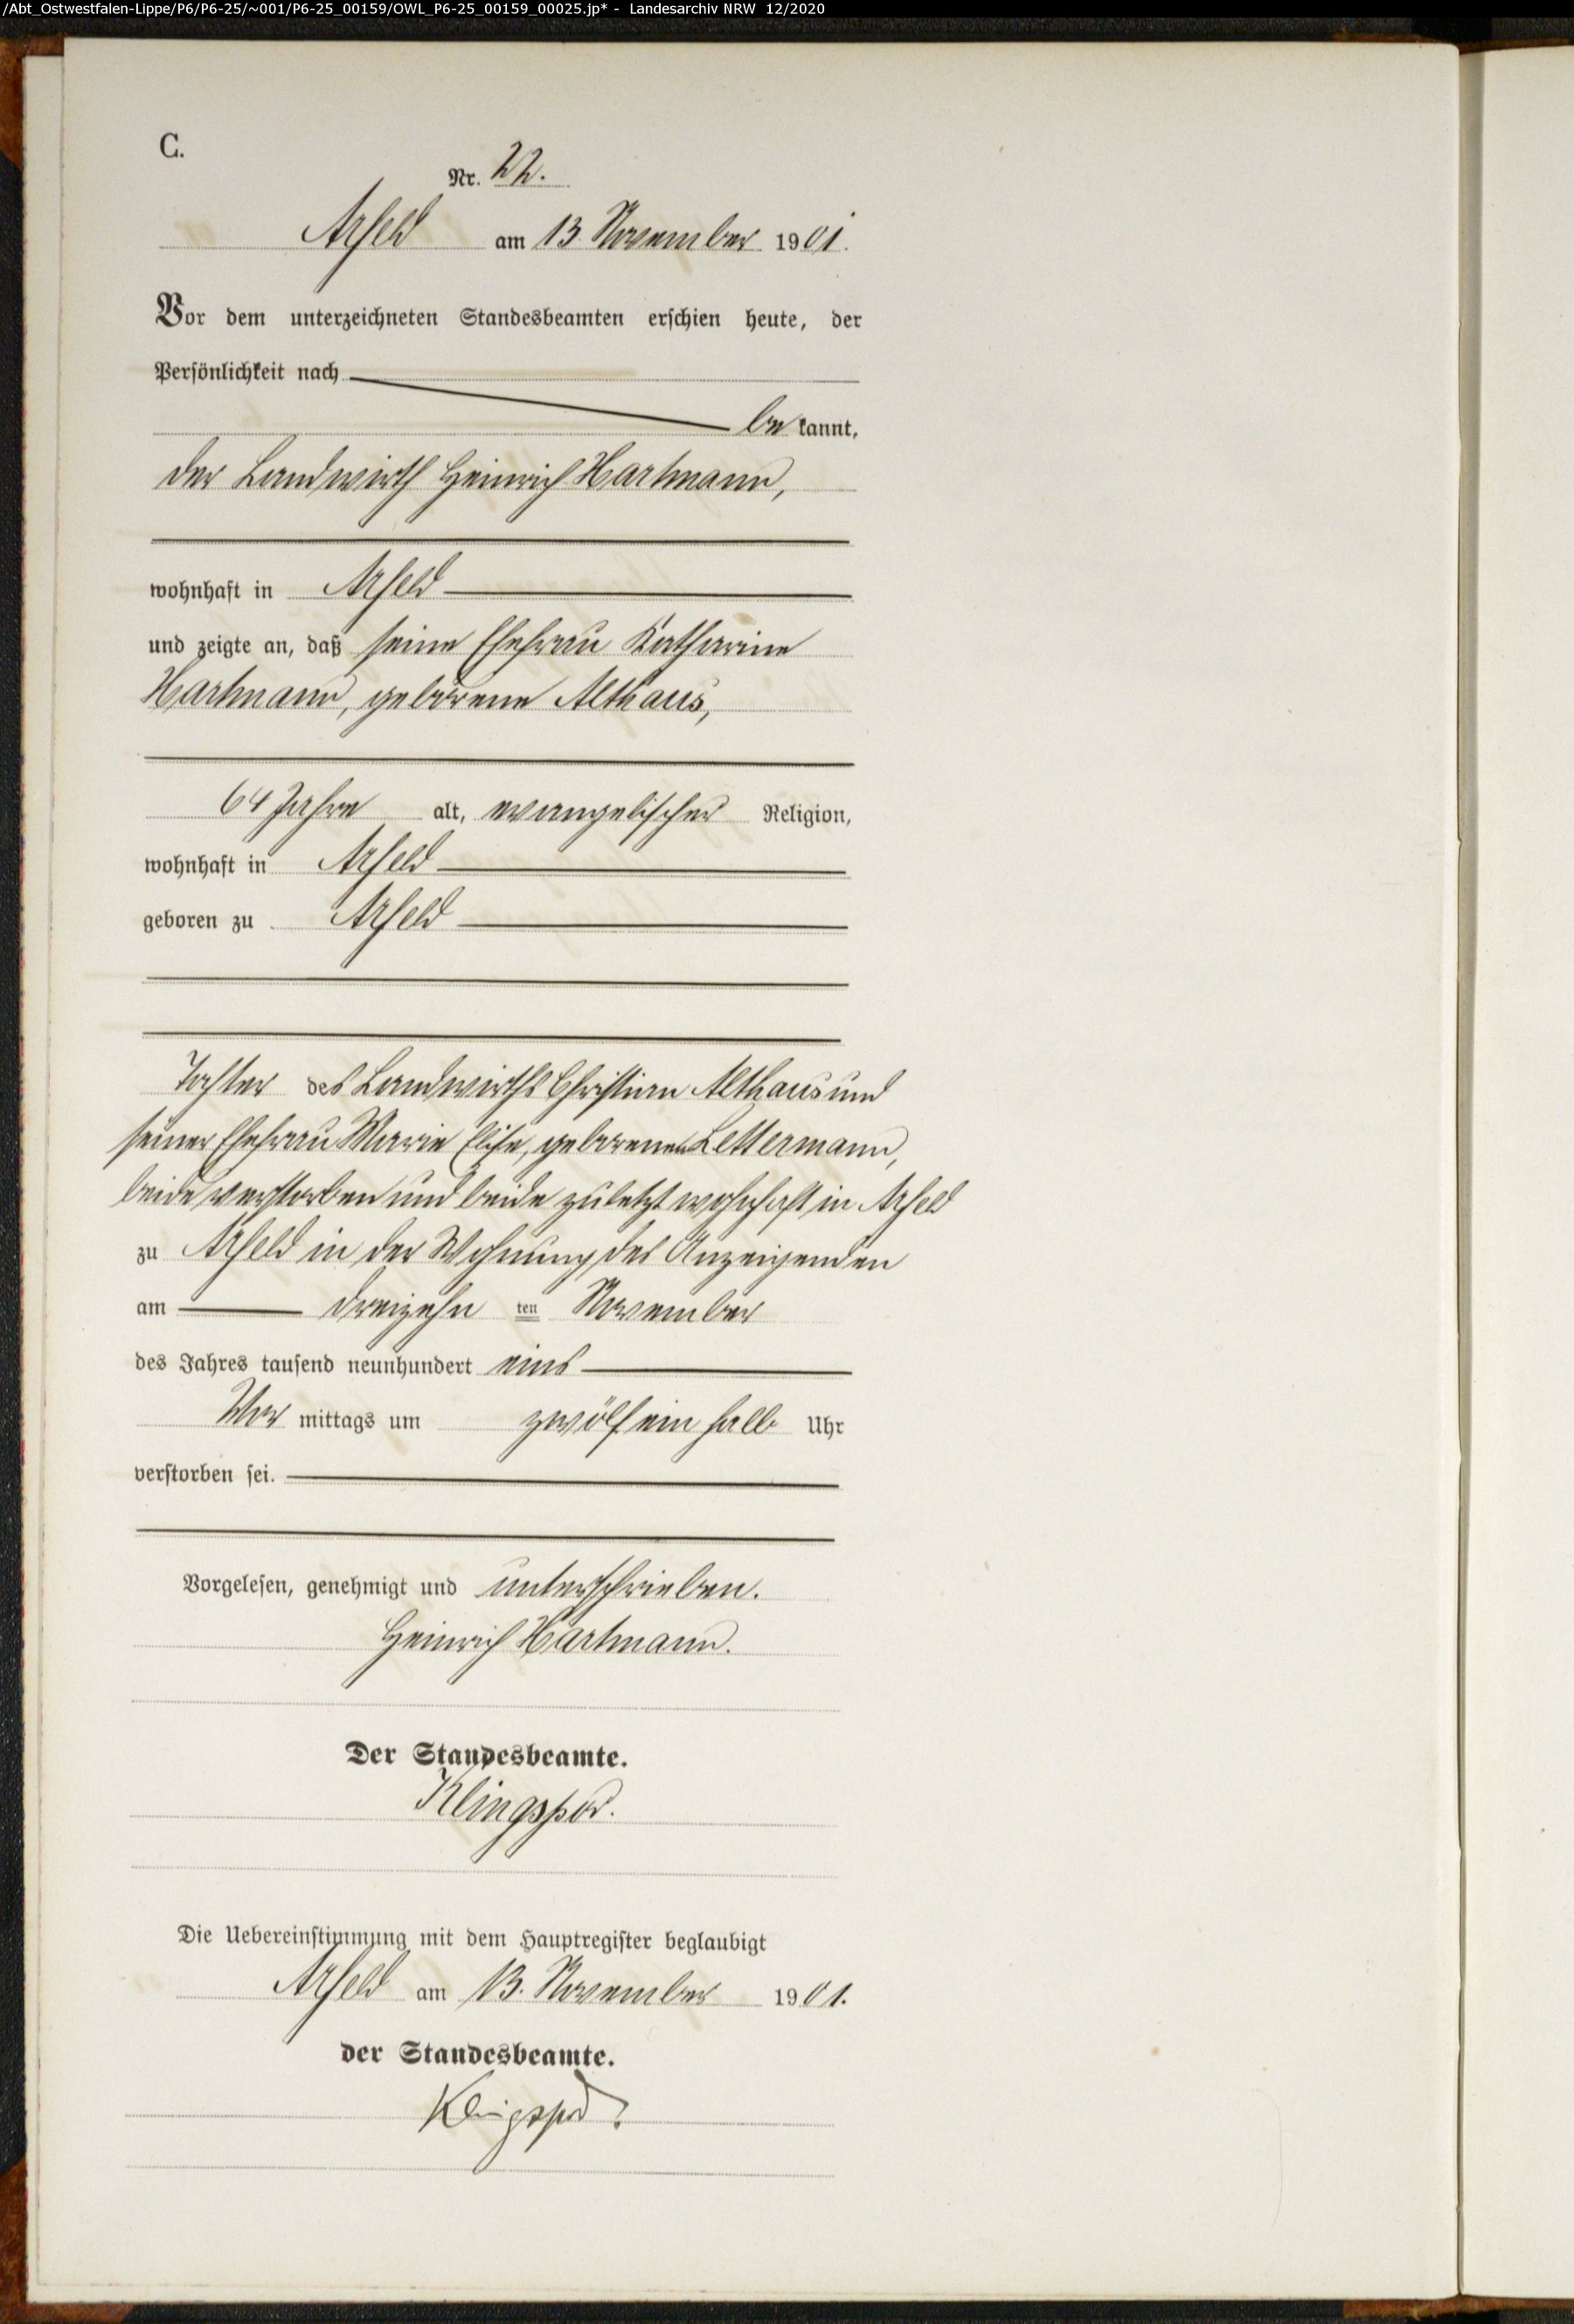 /Abt_Ostwestfalen-Lippe/P6/P6-25/~001/P6-25_00159/OWL_P6-25_00159_00025.jp* - Landesarchiv NRW 12/2020
C.
Nr. 22.
Arfeld am 13. November 1901.
Vor dem unterzeichneten Standesbeamten erschien heute, der
Persönlichkeit nach
bekannt,
der Landwirth Heinrich Hartmann,
wohnhaft in Arfeld
und zeigte an, daß seine Ehefrau Katharine
Hartmann, geborene Althaus,
64 Jahre alt, evangelischer Religion,
wohnhaft in Arfeld
geboren zu Arfeld
Tochter des Landwirths Christian Althaus und
seiner Ehefrau Marie Elise, geborenen Lettermann,
beide verstorben und beide zuletzt wohnhaft in Arfeld
zu Arfeld in der Wohnung des Anzeigenden
am dreizehn ten November
des Jahres tausend neunhundert eins
Vor mittags um zwölf ein halb Uhr
verstorben sei.
Vorgelesen, genehmigt und unterschrieben.
Heinrich Hartmann.
Der Standesbeamte.
Klingspor.
Die Uebereinstimmung mit dem Hauptregister beglaubigt
Arfeld am 13. November 1901.
der Standesbeamte.
Klingspor